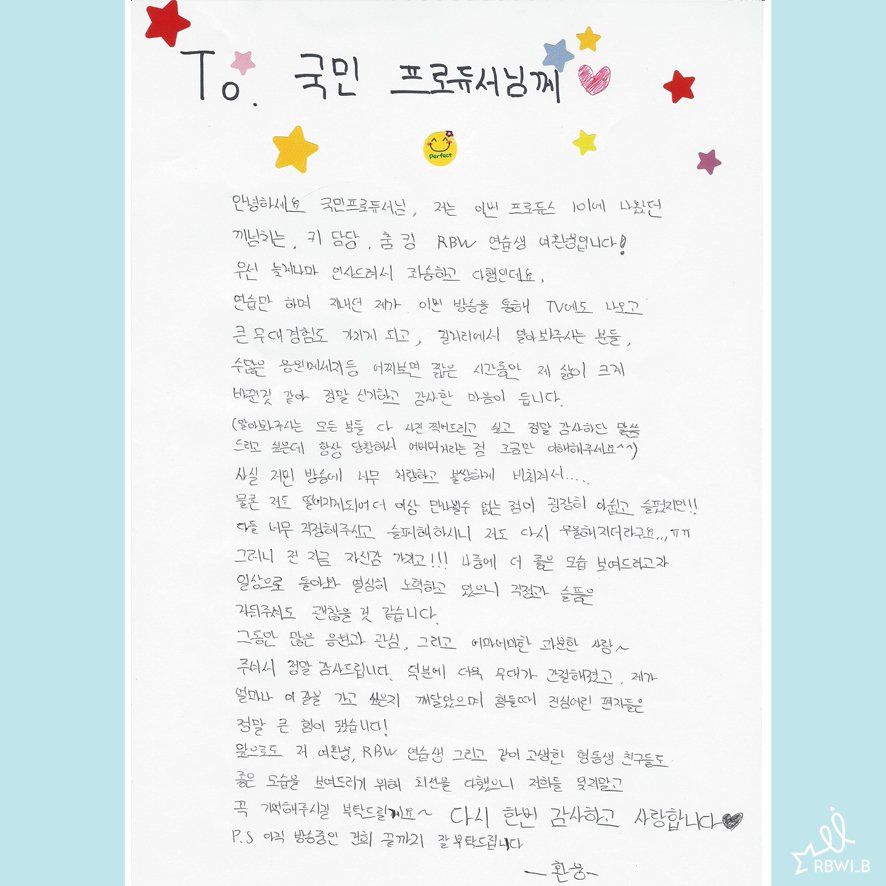 To. 국민 프로듀서님께
perfect
안녕하세요 국민프로듀서님, 저는 이번 프로듀스 101에 나왔던
끼넘치는, 키 담당, 춤 킹 RBW 연습생 여환웅입니다!
우선 늦게나마 인사드려서 죄송하고 다행인데요,
연습만 하며 지내던 제가 이번 방송을 통해 TV에도 나오고
큰 무대경험도 가지게 되고, 길거리에서 알아봐주시는 분들,
수많은 응원메세지등 어찌보면 짧은 시간동안 제 삶이 크게
바뀐것 같아 정말 신기하고 감사한 마음이 듭니다.
(알아봐주시는 모든 분들 다 사진 찍어드리고 싶고 정말 감사하단 말씀
드리고 싶은데 항상 당황해서 어버버거리는 점 조금만 이해해주세요^^)
사실 저번 방송에 너무 처량하고 불쌍하게 비춰져서.....
물론 저도 떨어지게되어 더 이상 만나뵐수 없는 점이 굉장히 아쉽고 슬펐지만!!
다들 너무 걱정해주시고 슬퍼해하시니 저도 다시 우울해지더라구요,,,ㅠㅠ
그러니 전 지금 자신감 가졌고!!! 나중에 더 좋은 모습 보여드리고자
일상으로 돌아와 열심히 노력하고 있으니 걱정과 슬픔은
거둬주셔도 괜찮을 것 같습니다.
그동안 많은 응원과 관심, 그리고 어마어마한 과분한 사랑~
주셔서 정말 감사드립니다. 덕분에 더욱 무대가 간절해졌고, 제가
얼마나 이 길을 가고 싶은지 깨달았으며 힘들때 진심어린 편지들은
정말 큰 힘이 됐습니다!
앞으로도 저 여환웅, RBW 연습생 그리고 같이 고생한 형동생 친구들도
좋은 모습을 보여드리기 위해 최선을 다했으니 저희들 잊지말고
꼭 기억해주시길 부탁드릴게요~ 다시 한번 감사하고 사랑합니다♥
P.S 아직 방송중인 건희 끝까지 잘 부탁드립니다
-환웅-
RBWI_B